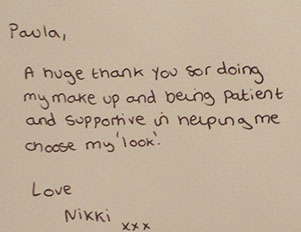 Paula,
A huge thank you for doing
my make up and being patient
and supportive in helping me
choose my 'look'.
Love
Nikki xxx